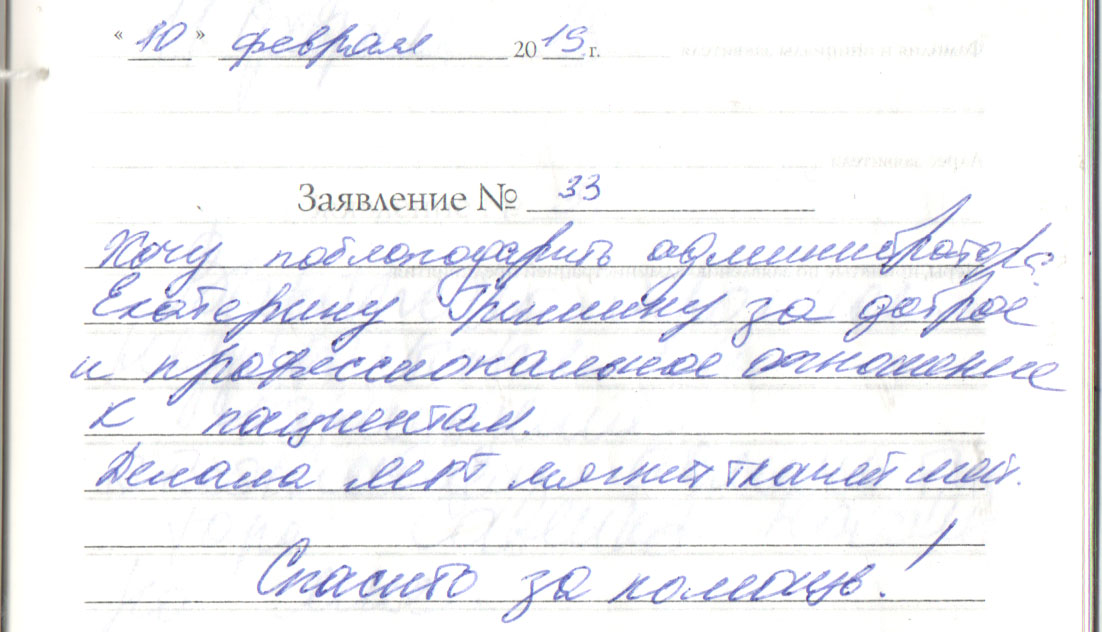 « 10 » февраля 2019 г.
Заявление № 33
Хочу поблагодарить администратора
Екатерину Гришину за доброе
и профессиональное отношение
к пациентам.
Делала МРТ мягких тканей шеи.
Спасибо за помощь!